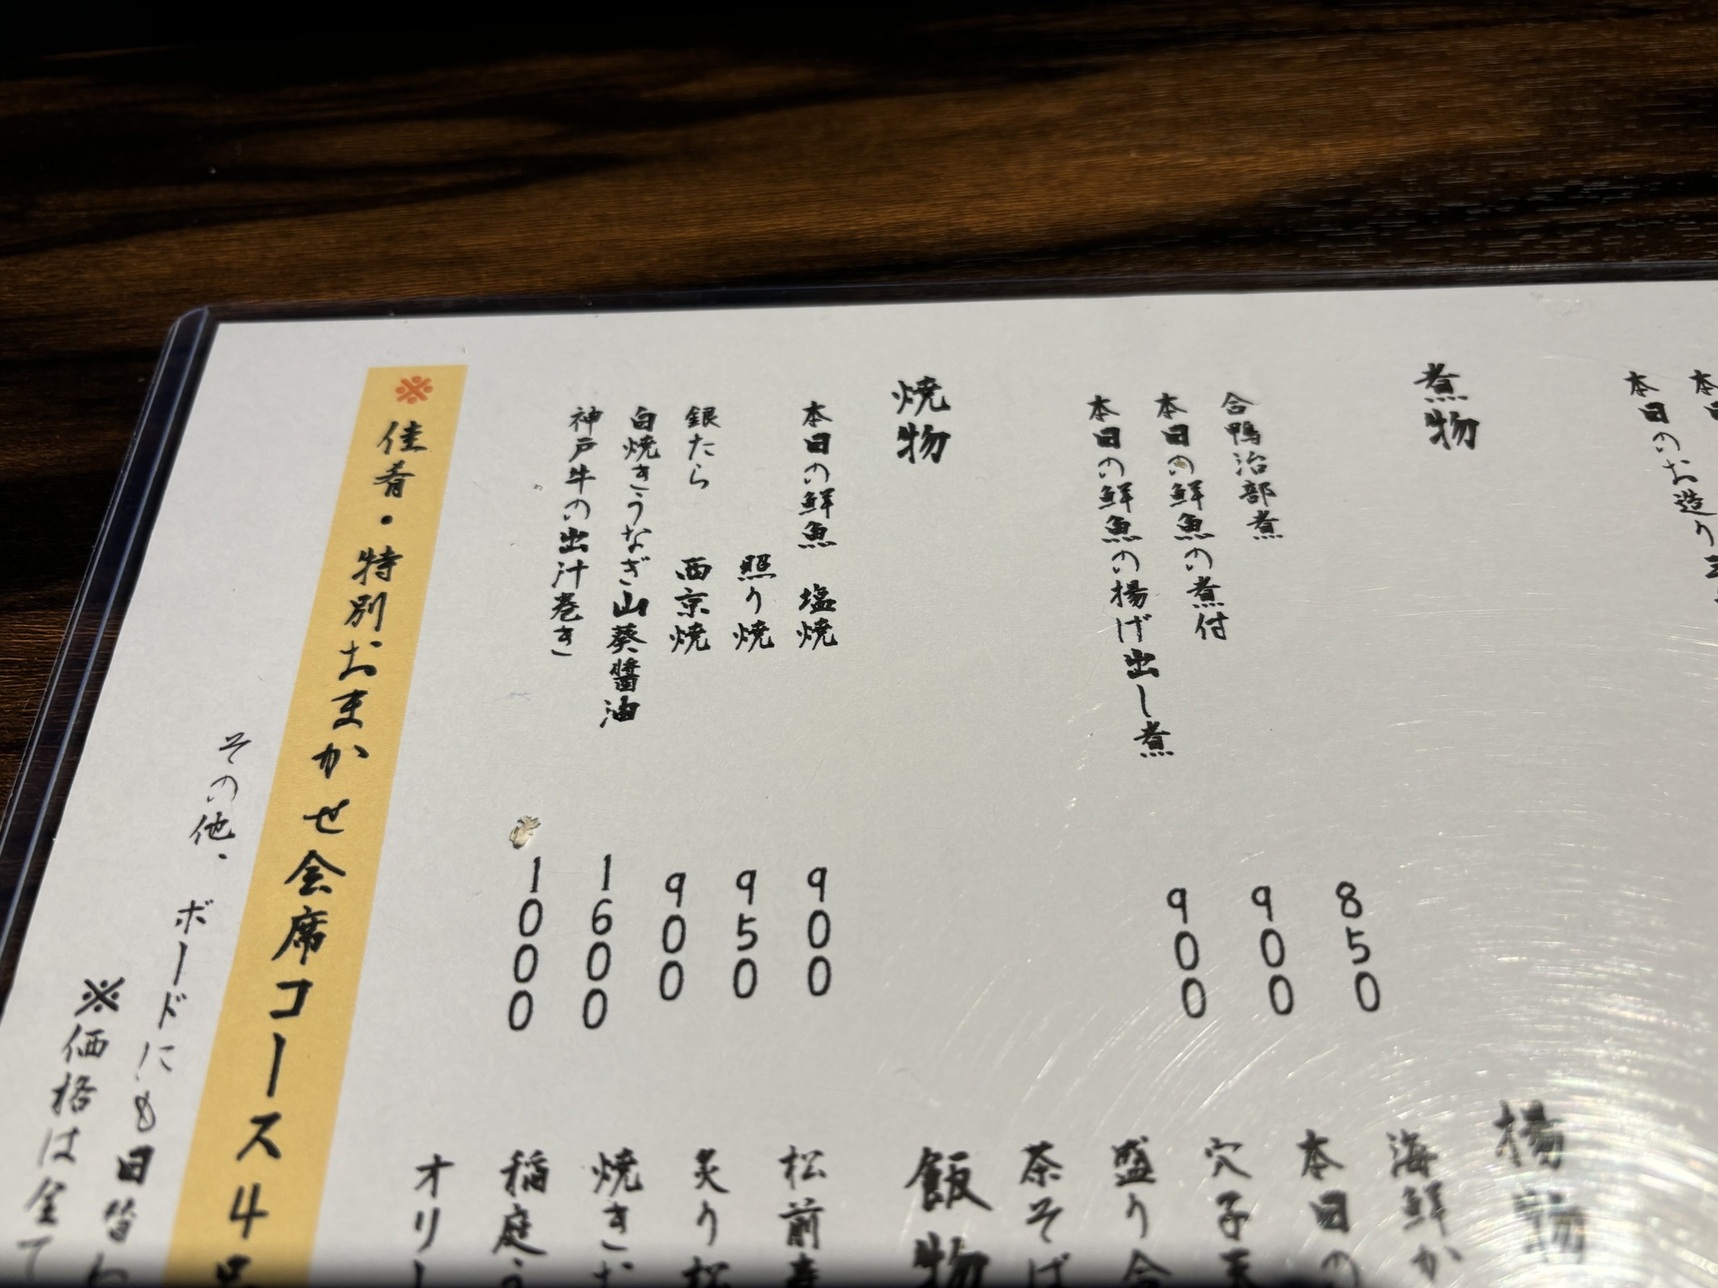 本日のお造り
煮物
合鴨治部煮 850
本日の鮮魚の煮付 900
本日の鮮魚の揚げ出し煮 900
焼物
本日の鮮魚 塩焼 900
照り焼 950
銀たら 西京焼 900
白焼きうなぎ山葵醤油 1600
神戸牛の出汁巻き 1000
揚物
海鮮か
本日の
穴子天
盛り合
茶そば
飯物
松前寿
炙り松
焼きお
稲庭う
オリー
※佳肴・特別おまかせ会席コース4品
その他、ボードにも日替わ
※価格は全て